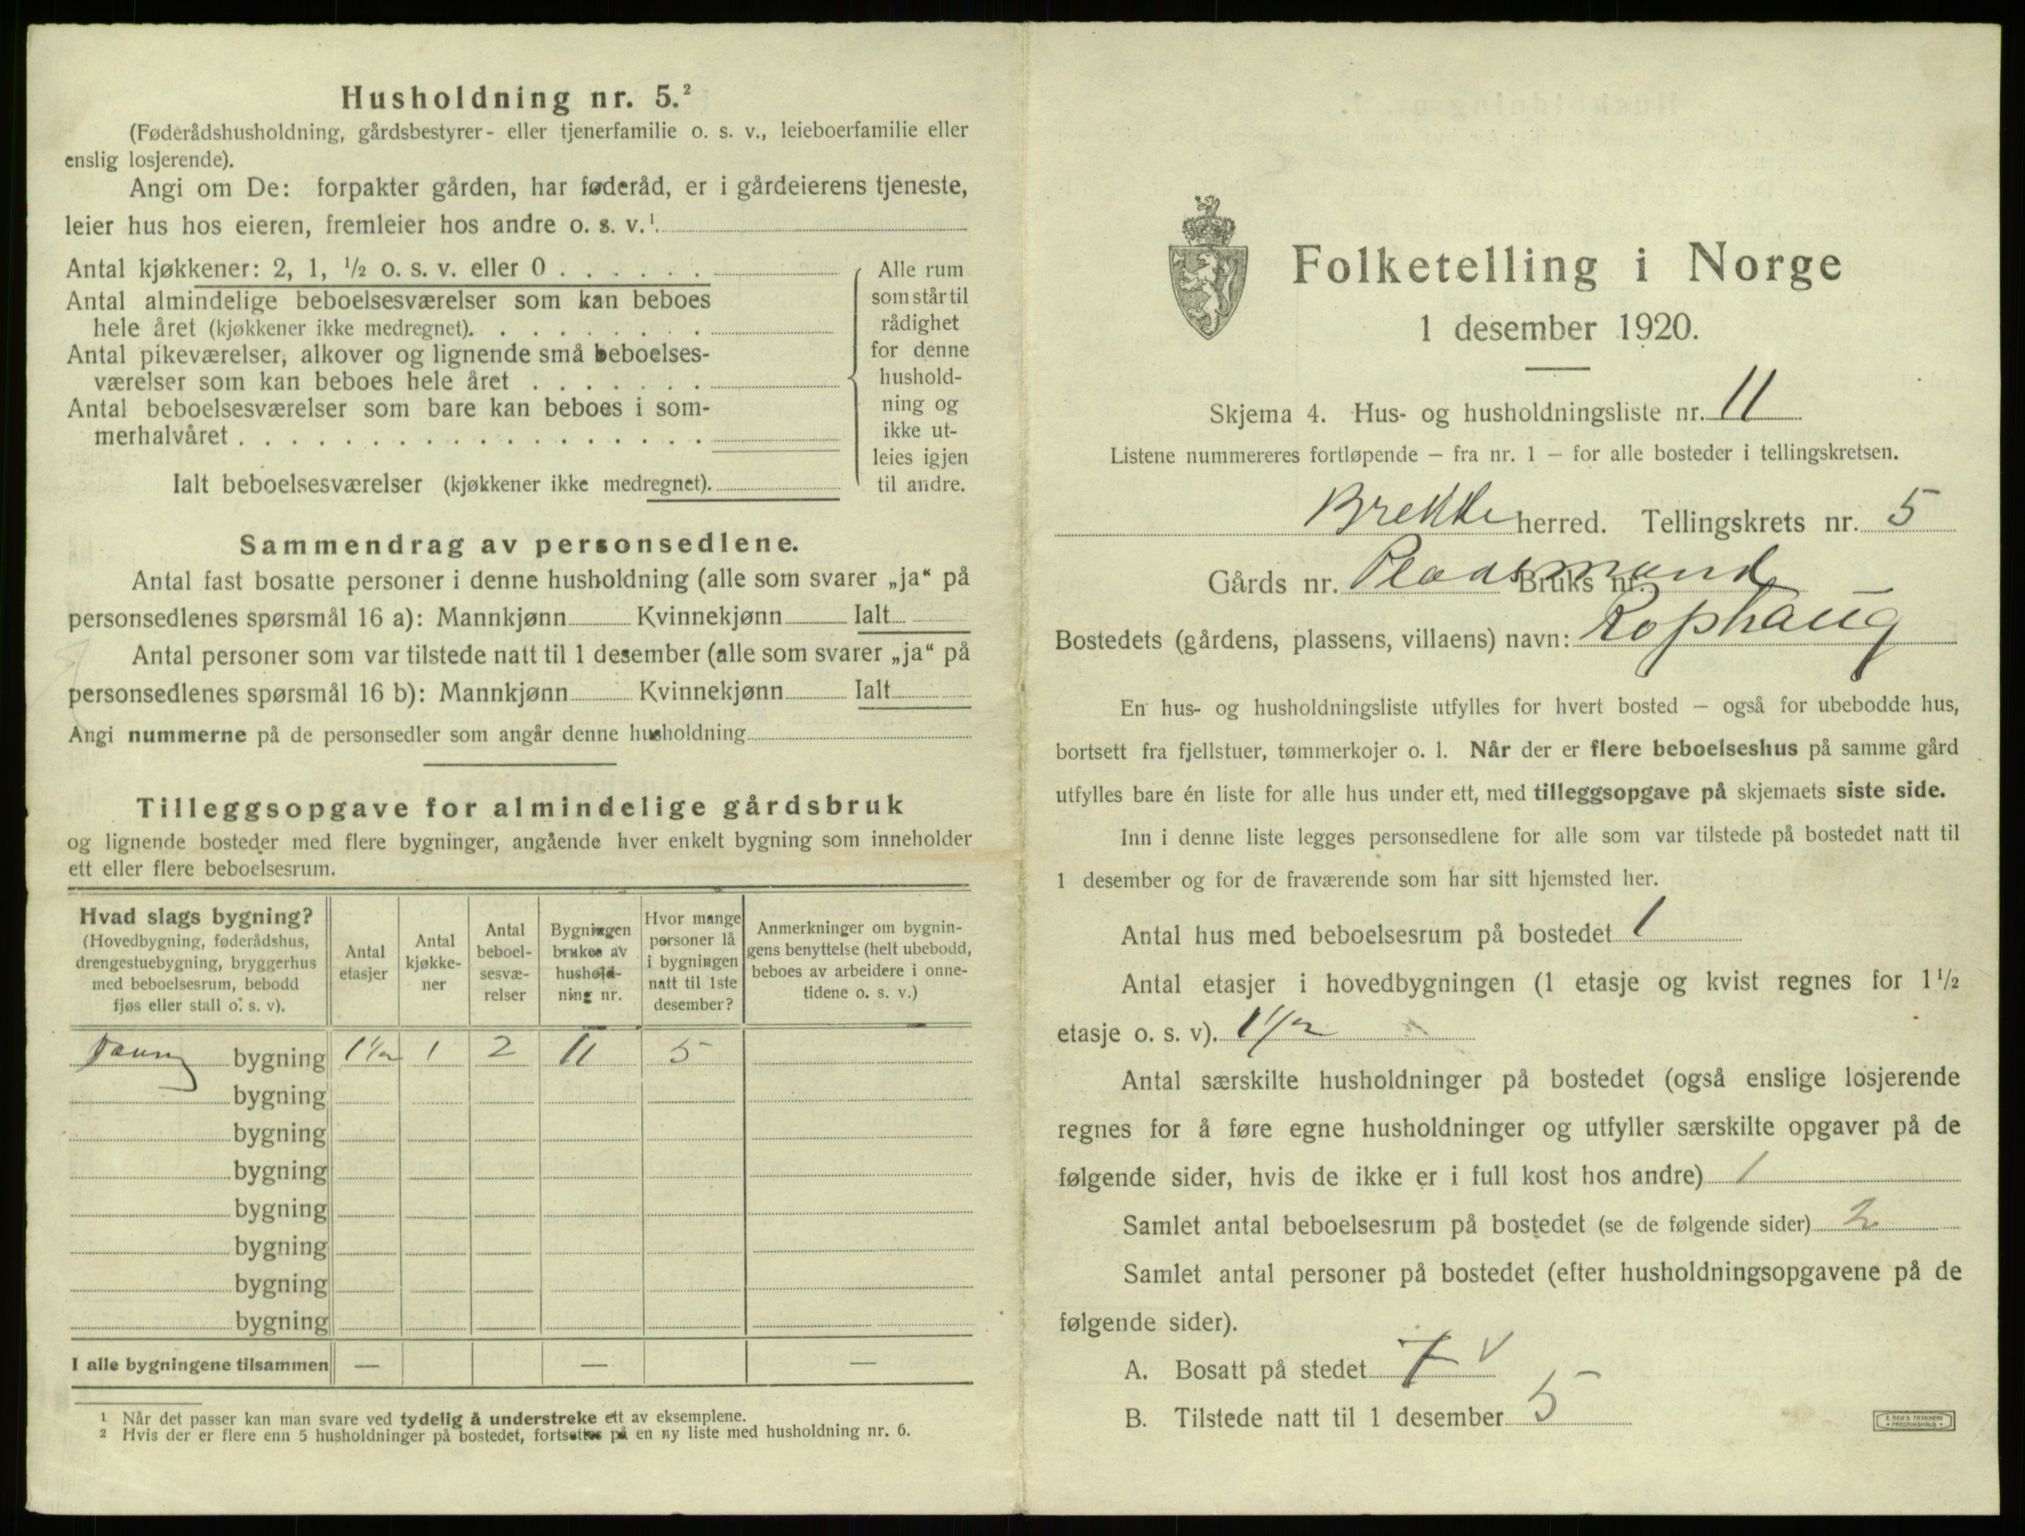 Husholdning nr. 5.²
(Føderådshusholdning, gårdsbestyrer- eller tjenerfamilie o. s. v., leieboerfamilie eller
enslig losjerende).
Angi om De: forpakter gården, har føderåd, er i gårdeierens tjeneste,
leier hus hos eieren, fremleier hos andre o. s. v.¹
Antal kjøkkener: 2, 1, ½ o. s. v. eller 0 . . . . . .
Antal almindelige beboelsesværelser som kan beboes
hele året (kjøkkener ikke medregnet). . . . . . . . .
Antal pikeværelser, alkover og lignende små beboelses-
værelser som kan beboes hele året . . . . . . .
Antal beboelsesværelser som bare kan beboes i som-
merhalvåret . . . . . . . . . . . . . . . . . .
Ialt beboelsesværelser (kjøkkener ikke medregnet).
Alle rum
som står til
rådighet
for denne
hushold-
ning og
ikke ut-
leies igjen
til andre.
Sammendrag av personsedlene.
Antal fast bosatte personer i denne husholdning (alle som svarer „ja“ på
personsedlenes spørsmål 16 a): Mannkjønn Kvinnekjønn Ialt
Antal personer som var tilstede natt til 1 desember (alle som svarer „ja“ på
personsedlenes spørsmål 16 b): Mannkjønn Kvinnekjønn Ialt
Angi nummerne på de personsedler som angår denne husholdning
Tilleggsopgave for almindelige gårdsbruk
og lignende bosteder med flere bygninger, angående hver enkelt bygning som inneholder
ett eller flere beboelsesrum.
Hvad slags bygning?
(Hovedbygning, føderådshus,
drengestuebygning, bryggerhus
med beboelsesrum, bebodd
fjøs eller stall o. s. v).
Antal
etasjer
Antal
kjøkke-
ner
Antal
beboel-
sesvæ-
relser
Bygningen
brukes av
hushold-
ning nr.
Hvor mange
personer lå
i bygningen
natt til 1ste
desember?
Anmerkninger om bygnin-
gens benyttelse (helt ubebodd,
beboes av arbeidere i onne-
tidene o. s. v.)
bygning 1½ 1 2 11 5
bygning
bygning
bygning
bygning
bygning
bygning
bygning
I alle bygningene tilsammen — — —
¹ Når det passer kan man svare ved tydelig å understreke ett av eksemplene.
² Hvis der er flere enn 5 husholdninger på bostedet, fortsettes på en ny liste med husholdning nr. 6.
Folketelling i Norge
1 desember 1920.
Skjema 4. Hus- og husholdningsliste nr. 11
Listene nummereres fortløpende — fra nr. 1 — for alle bosteder i tellingskretsen.
Brekke herred. Tellingskrets nr. 5
Gårds nr. Pladsmand Bruks nr.
Bostedets (gårdens, plassens, villaens) navn: Rophaug
En hus- og husholdningsliste utfylles for hvert bosted — også for ubebodde hus,
bortsett fra fjellstuer, tømmerkojer o. l. Når der er flere beboelseshus på samme gård
utfylles bare én liste for alle hus under ett, med tilleggsopgave på skjemaets siste side.
Inn i denne liste legges personsedlene for alle som var tilstede på bostedet natt til
1 desember og for de fraværende som har sitt hjemsted her.
Antal hus med beboelsesrum på bostedet 1
Antal etasjer i hovedbygningen (1 etasje og kvist regnes for 1½
etasje o. s. v). 1½
Antal særskilte husholdninger på bostedet (også enslige losjerende
regnes for å føre egne husholdninger og utfyller særskilte opgaver på de
følgende sider, hvis de ikke er i full kost hos andre) 1
Samlet antal beboelsesrum på bostedet (se de følgende sider) 2
Samlet antal personer på bostedet (efter husholdningsopgavene på de
følgende sider).
A. Bosatt på stedet 7 v
B. Tilstede natt til 1 desember 5